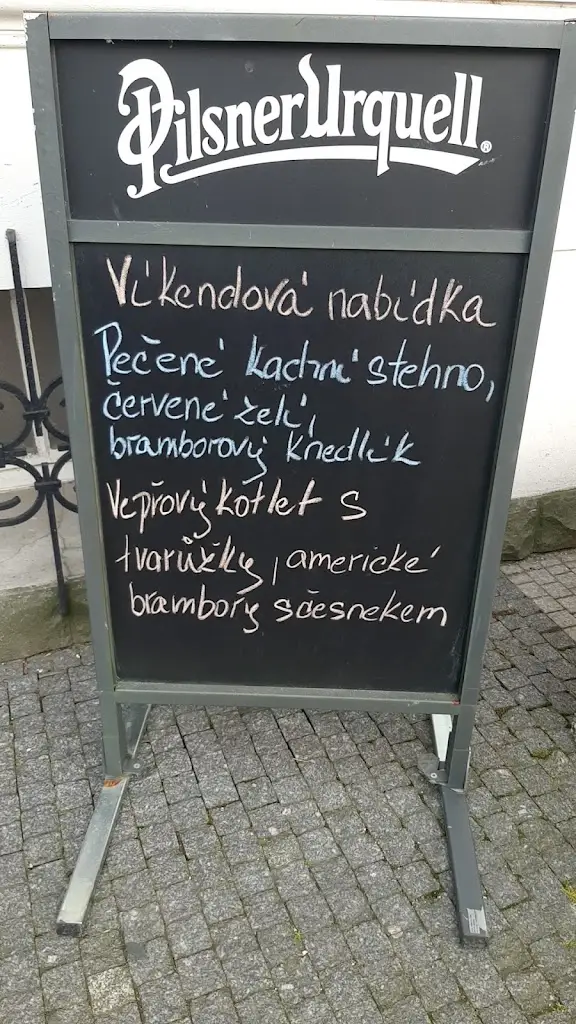 Pilsner Urquell
Víkendová nabídka
Pečené kachní stehno,
červené zelí,
bramborový knedlík
Vepřový kotlet s
tvarůžky, americké
brambory sčesnekem